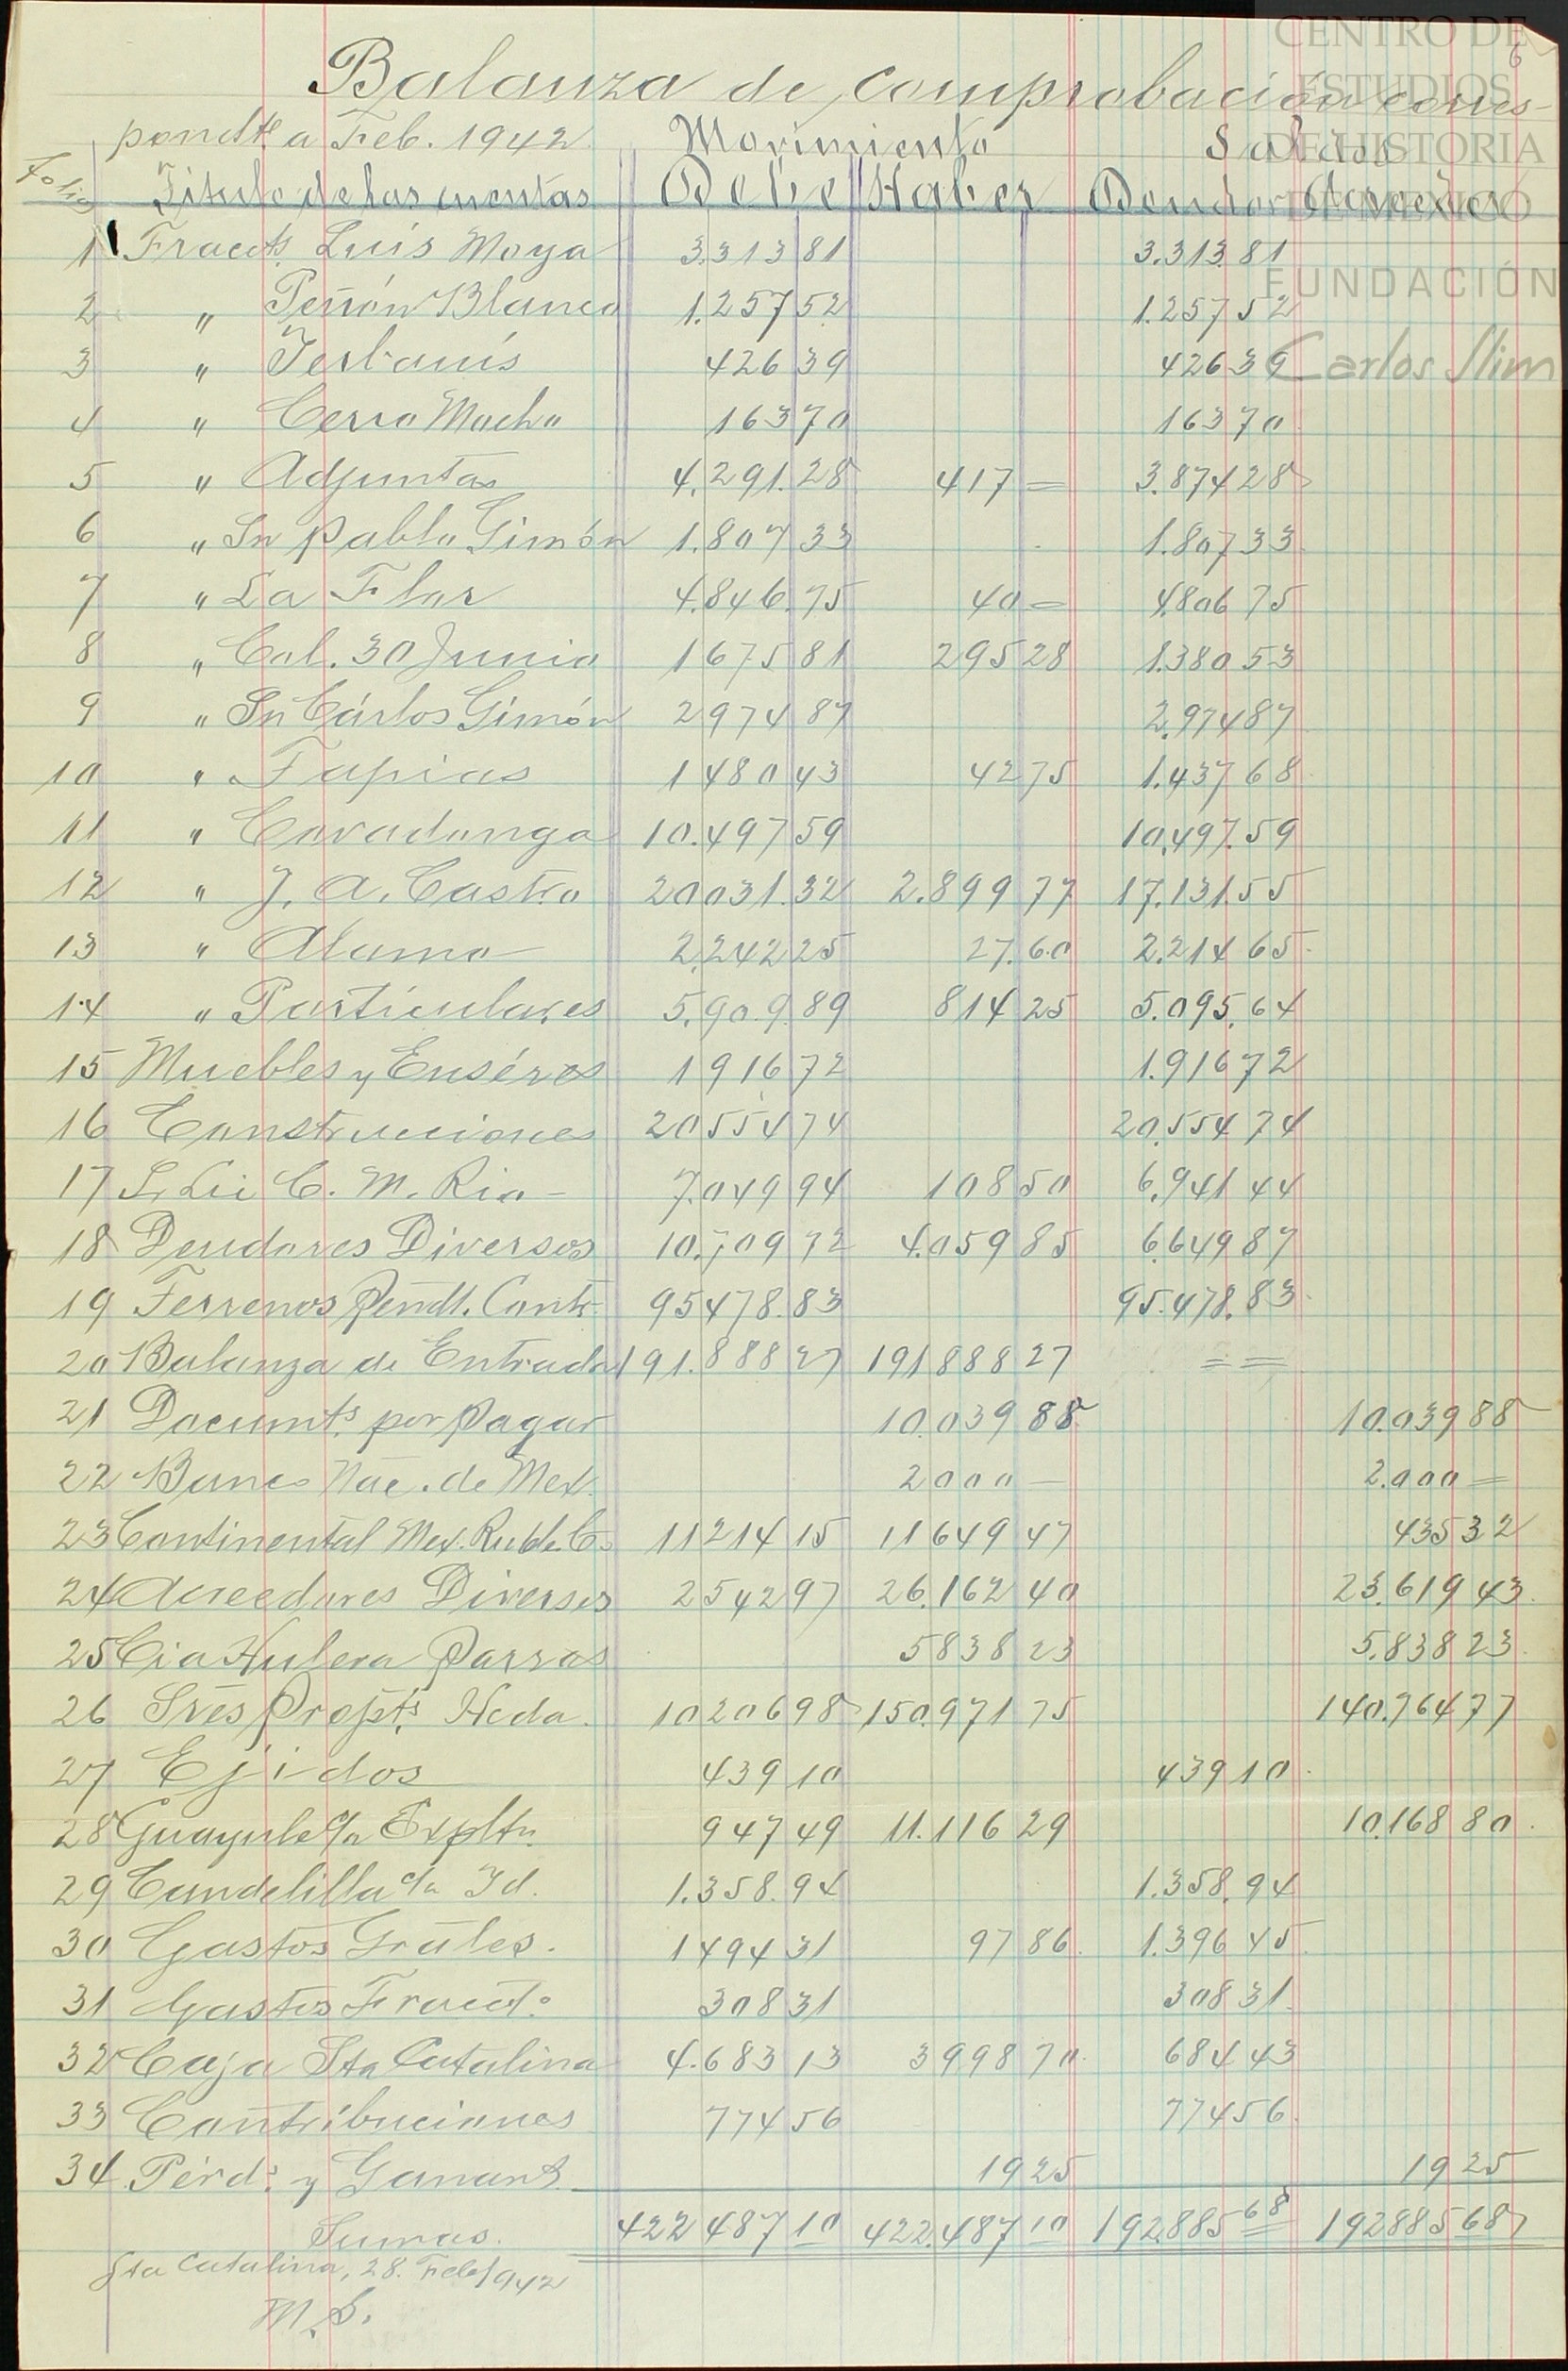 CENTRO DE
ESTUDIOS
DE HISTORIA
DE MÉXICO
FUNDACIÓN
Carlos Slim
6
Balanza de comprobación corres-
pondte a Feb. 1942. Movimiento Saldos
Folio Título de las cuentas Debe Haber Deudor Acreedor
1 Fracts. Luis Moya 3.313 81 3.313 81
2 " Peñón Blanco 1.257 52 1.257 52
3 " Yerbanís 426 39 426 39
4 " Cerro Mocho 163 70 163 70
5 " Adjuntas 4.291.28 417 = 3.874 28
6 " Sn Pablo Gimón 1.807 33 1.807 33
7 " La Flor 4.846.75 40 = 4.806 75
8 " Col. 30 Junio 1675 81 295 28 1.380 53
9 " Sn Cárlos Gimón 2974 87 2.974 87
10 " Tapias 1480 43 42 75 1.437 68
11 " Covadonga 10.497 59 10.497.59
12 " J. A. Castro 20031.32 2.899 77 17.131.55
13 " Alamo 2.242 25 27.60 2.214 65
14 " Particulares 5.909.89 814 25 5.095.64
15 Muebles y Enséres 1916 72 1.916 72
16 Construcciones 20554 74 20.554 74
17 S. Lic C. M. Rio - 7.049 94 108 50 6.941 44
18 Deudores Diversos 10.709 72 4.059 85 6.649 87
19 Terrenos Pendt. Contr. 95478.83 95.478.83
20 Balanza de Entrada 191.888 27 191888 27 = =
21 Documts. por Pagar 10.039 88 10.039 88
22 Banco Nac. de Mex. 2000 - 2.000 =
23 Continental Mex. Rubb. Co 11214 15 11649 47 435 32
24 Acreedores Diversos 2542 97 26.162 40 23.619 43
25 Cia Hulera Parras 5838 23 5.838 23
26 Sres Propts. Hcda. 10206 98 150.971 75 140.764 77
27 Ejidos 439 10 439 10
28 Guayule c/a Expltn. 947 49 11.116 29 10.168 80
29 Candelilla c/a Id. 1.358.94 1.358.94
30 Gastos Gráles. 1494 31 97 86 1.396 45
31 Gastos Fracto. 308 31 308 31
32 Caja Sta Catalina 4.683 13 3998 70 684 43
33 Contribuciones 774 56 774 56
34 Pérds. y Ganans. 19 25 19 25
Sumas. 422 487 10 422.487 10 192885 68 192885 68
Sta Catalina, 28. Feb/1942
M. S.